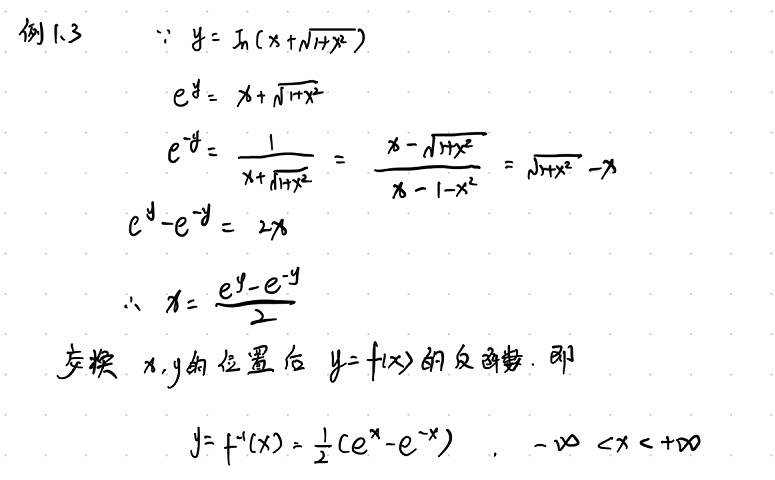 例1.3 ∵ y = ln(x+√(1+x²))
e^y = x+√(1+x²)
e^{-y} = 1/(x+√(1+x²)) = (x-√(1+x²))/(x-1-x²) = √(1+x²) -x
e^y-e^{-y} = 2x
∴ x = (e^y-e^{-y})/2
交换 x,y的位置后 y=f(x)的反函数.即
y=f^{-1}(x)=1/2(e^x-e^{-x}) , -∞ <x< +∞